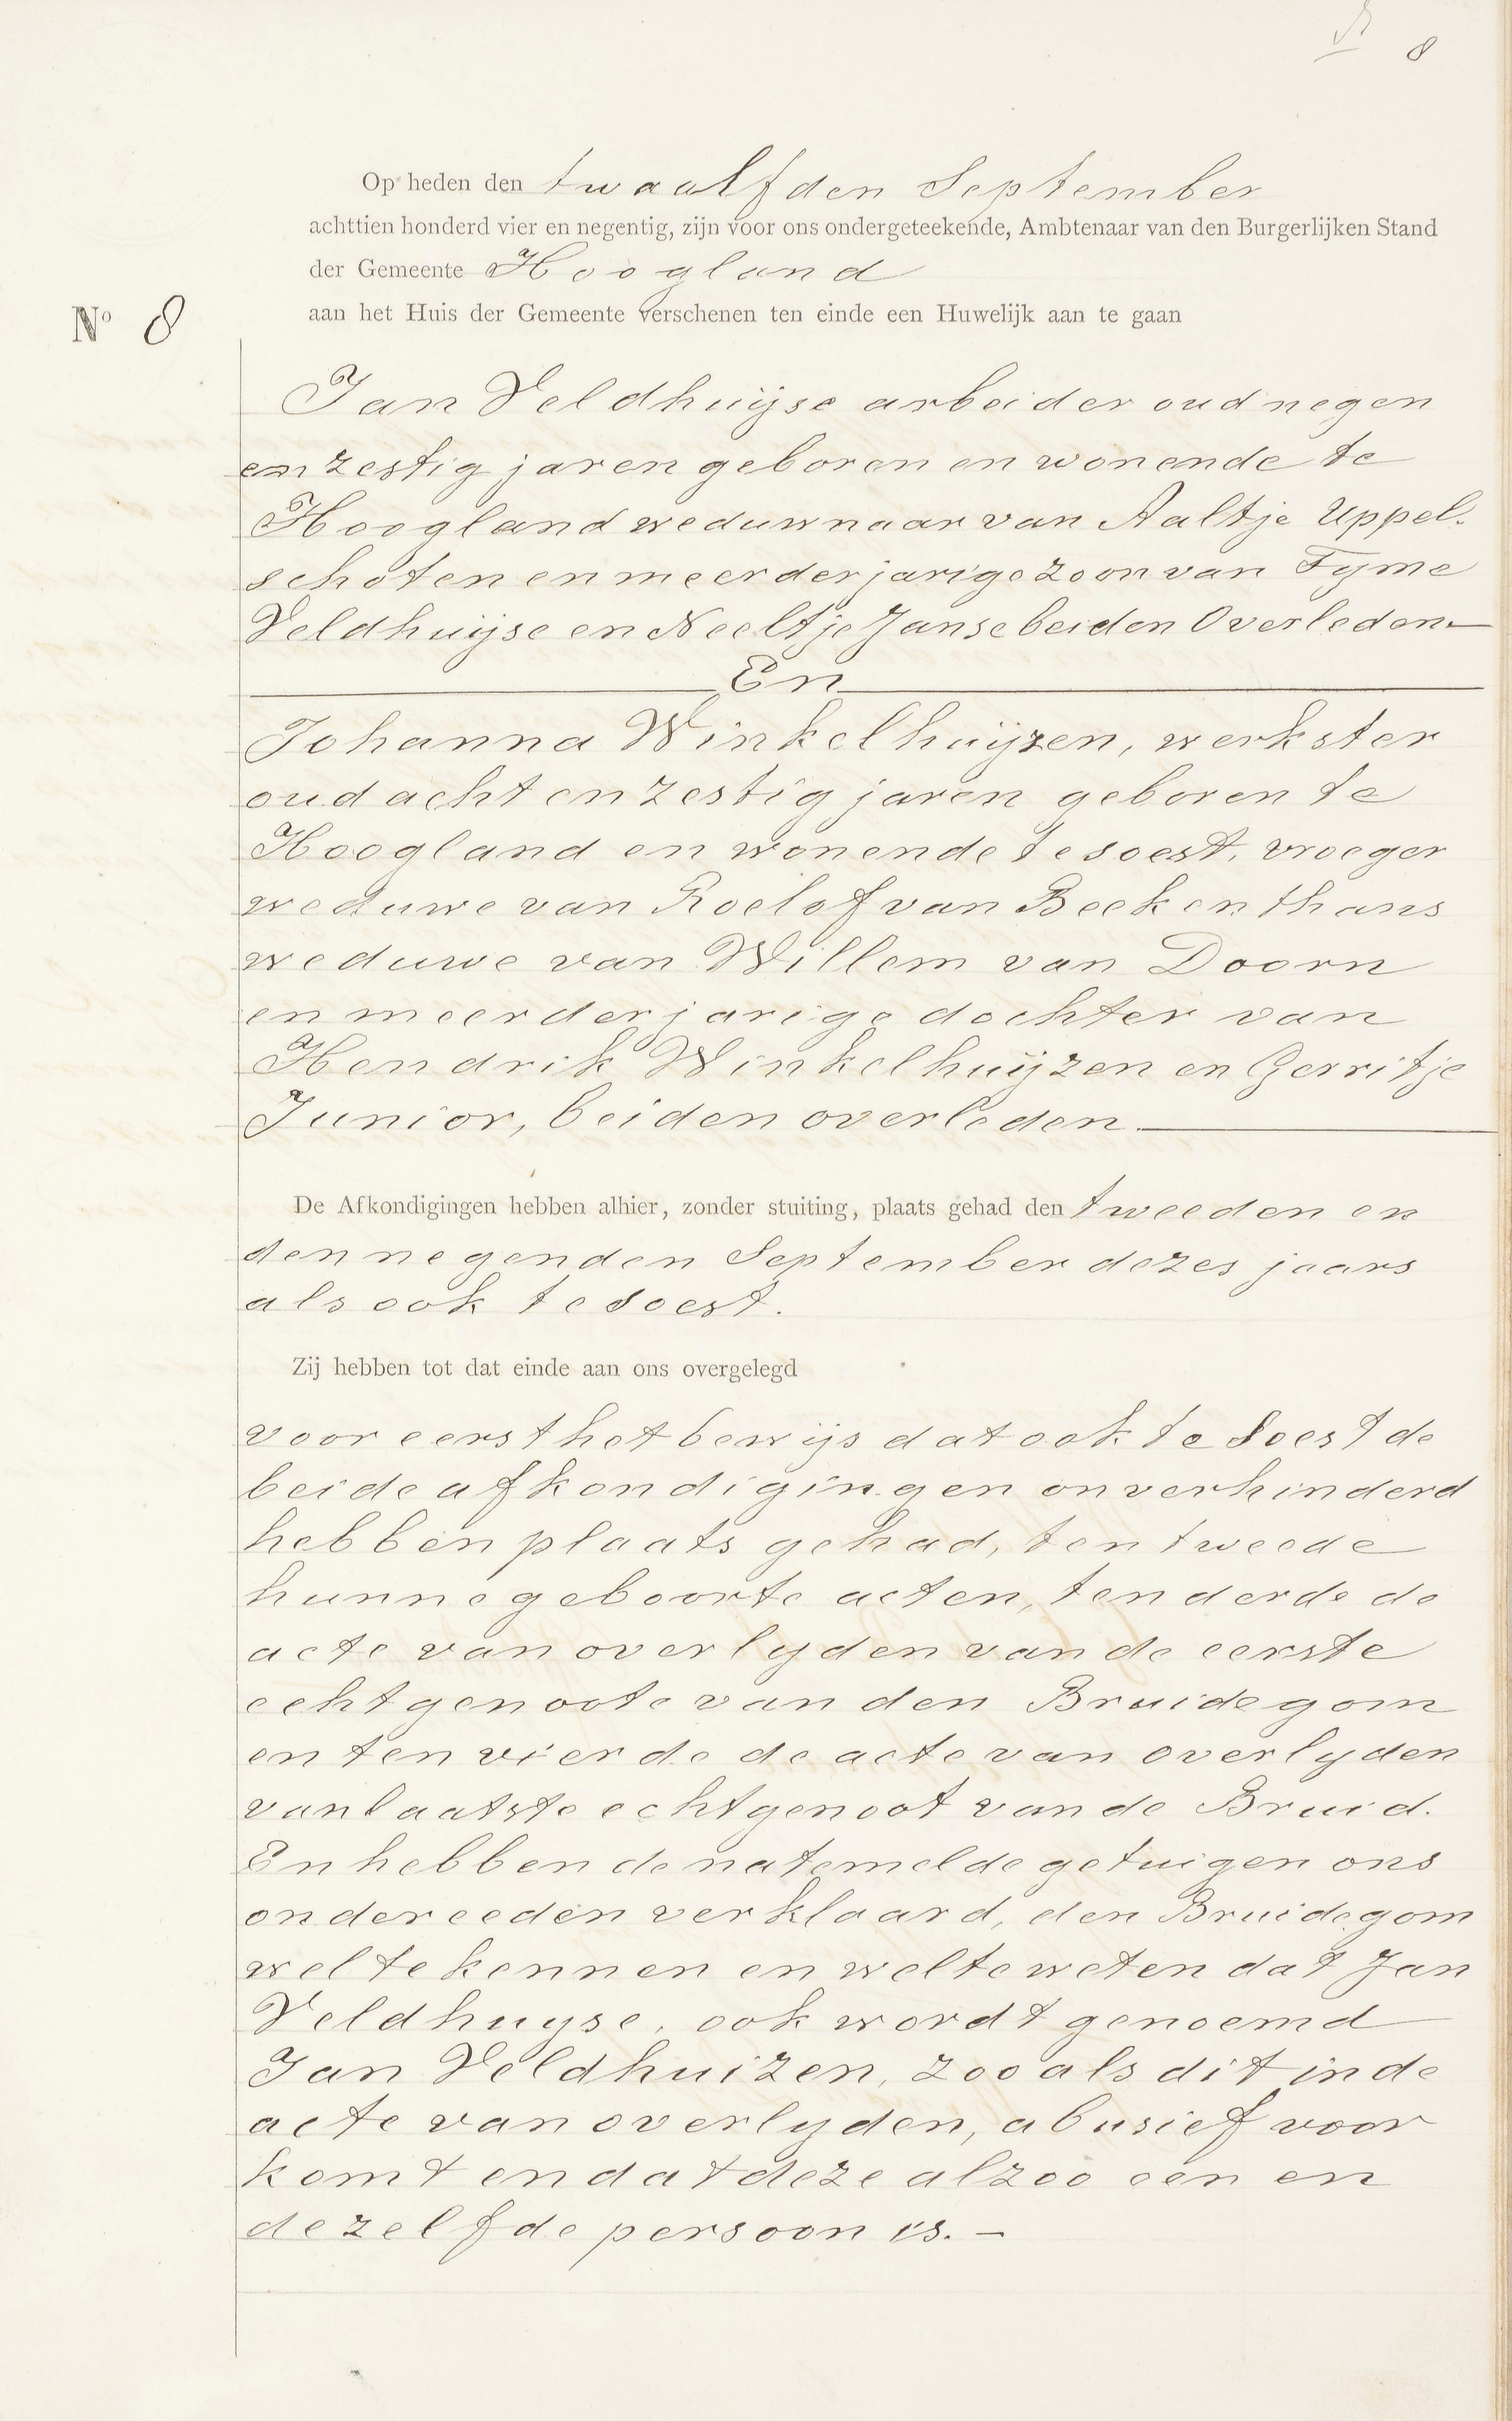 8
Op heden den twaalfden September
achttien honderd vier en negentig, zijn voor ons ondergeteekende, Ambtenaar van den Burgerlijken Stand
der Gemeente Hoogland
aan het Huis der Gemeente verschenen ten einde een Huwelijk aan te gaan
No 8
Jan Veldhuijse arbeider oud negen
en zestig jaren geboren en wonende te
Hoogland weduwnaar van Aaltje Uppel-
schoten en meerderjarige zoon van Tyme
Veldhuijse en Neeltje Janse beiden Overleden
En
Johanna Winkelhuijzen, werkster
oud acht en zestig jaren geboren te
Hoogland en wonende te soest, vroeger
weduwe van Roelof van Beek en thans
weduwe van Willem van Doorn
en meerderjarige dochter van
Hendrik Winkelhuijzen en Gerritje
Junior, beiden overleden.
De Afkondigingen hebben alhier, zonder stuiting, plaats gehad den tweeden en
den negenden September dezes jaars
als ook te Soest.
Zij hebben tot dat einde aan ons overgelegd
voor eerst het bewijs dat ook te Soest de
beide afkondigingen onverhinderd
hebben plaats gehad, ten tweede
hunne geboorte acten, ten derde de
acte van overlyden van de eerste
echtgenoote van den Bruidegom
en ten vierde de acte van overlyden
van laatste echtgenoot van de Bruid.
En hebben de natemelde getuigen ons
onder eeden verklaard, den Bruidegom
wel te kennen en wel te weten dat Jan
Veldhuyse, ook wordt genoemd
Jan Veldhuizen, zoo als dit in de
acte van overlyden, abusief voor
komt en dat deze alzoo een en
dezelfde persoon is. —